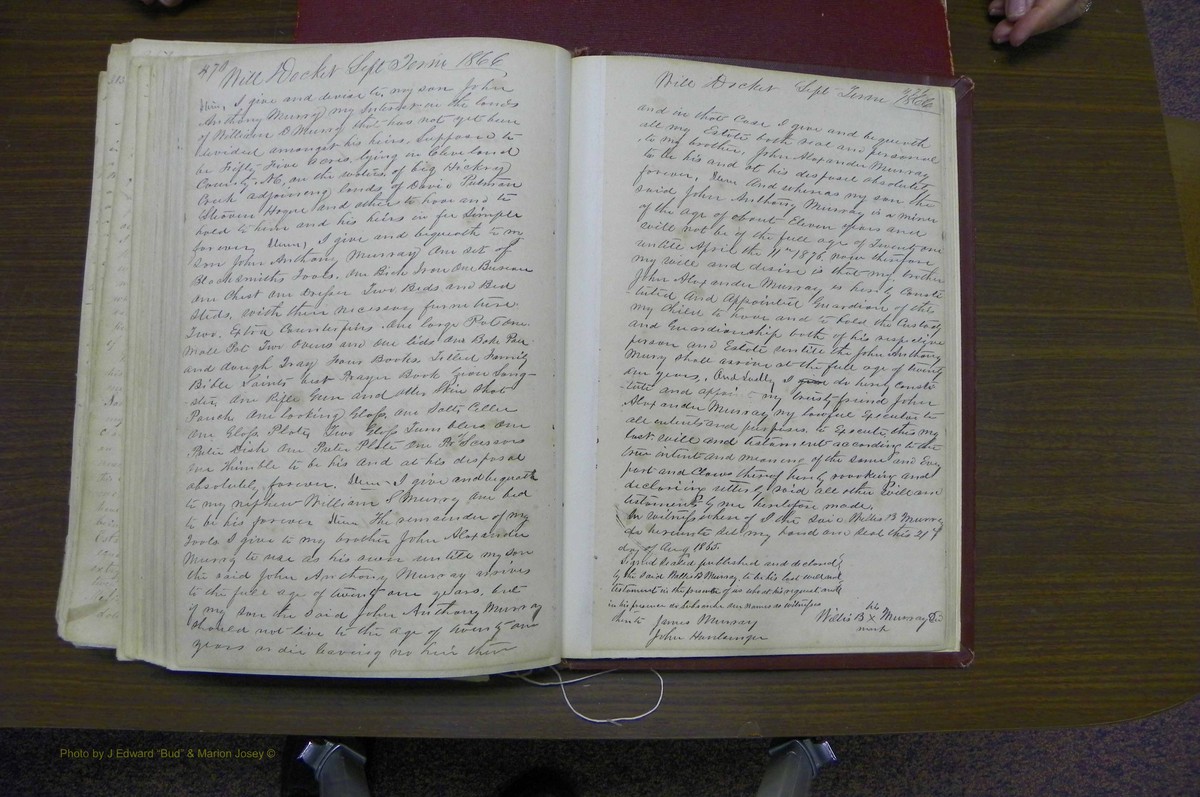 470 Will Docket Sept Term 1866
Item, I give and devise to my son John
Anthony Murray my interest in the lands
of William D Murry that has not yet been
devided amongst his heirs, Supposed to
be Fifty Five acres, lying in Cleveland
County, N.C. on the waters of big Hickory
Creek adjoining lands of David Putman
Hogue and others to have and to
hold to him and his heirs in fee Simple
forever, Item, I give and bequeath to my
son John Anthony Murray One set of
Blacksmiths Tools, One Bick Iron One Bureau
One Chest One Two Beds and Bed
steds, with their necessary furniture
Two Extra Counterpins One large Pot One
Small Pot Two Ovens and one lids One Bake Pan
and dough Tray Four Books Titled Family
Bible Saints rest Prayer Book Zion Song-
ster, One Rifle Gun and otter Skin Shot
Pouch One looking Glass, one Salt Celler
One Glass Plate, Two Glass Tumblers One
Dish One Puter Plate One Pr Scissors
One Thimble to be his and at his disposal
absolutely forever. Item I give and bequeath
to my nephew William S Murry One bed
to be his forever Item The remainder of my
Tools I give to my brother John Alexander
Murry to use as his own untill my son
the said John Anthony Murray arrives
to the full age of twenty one years, but
if my son the said John Anthony Murray
should not live to the age of twenty one
years or die leaving no heir then
Will Docket Sept Term 1866 471
and in that Case I give and bequeath
all my Estate both real and personal
to my brother, John Alexander Murray
to be his and at his disposal absolutely
forever, Item And whereas my son the
said John Anthony Murray is a minor
of the age of about Eleven years and
will not be of the full age of Twenty one
untill April the 11th 1876. now therefore
my will and desire is that my brother
John Alexander Murray is hereby Consti
tuted and Appointed Guardian of the
my Child to have and to hold the Custody
and Guardianship both of his respective
person and Estate untill the John Anthony
Murry shall arrive at the full age of twenty
one years, And lastly, I do hereby consti
tute and my trusty friend John
Alexander Murray my lawful Executor to
all entents and purposes, to Execute this my
last will and testament according to the
true intent and meaning of the same and Every
part and Clause thereof hereby revoking and
declaring utterly void all other Wills and
testaments by me heretofore made,
In witness where of I the said Willis B Murray
do hereunto set my hand and seal this 21st
day of Aug 1865.
Signed Sealed published and declared
by the said Willis B Murray, to be his last will and
testament in the presence of us who at his request and
in his presence do Subscribe our Names as witnesses
James Murray
John Hunsinger
his
Willis B X Murray
mark
Photo by J Edward "Bud" & Marion Josey ©